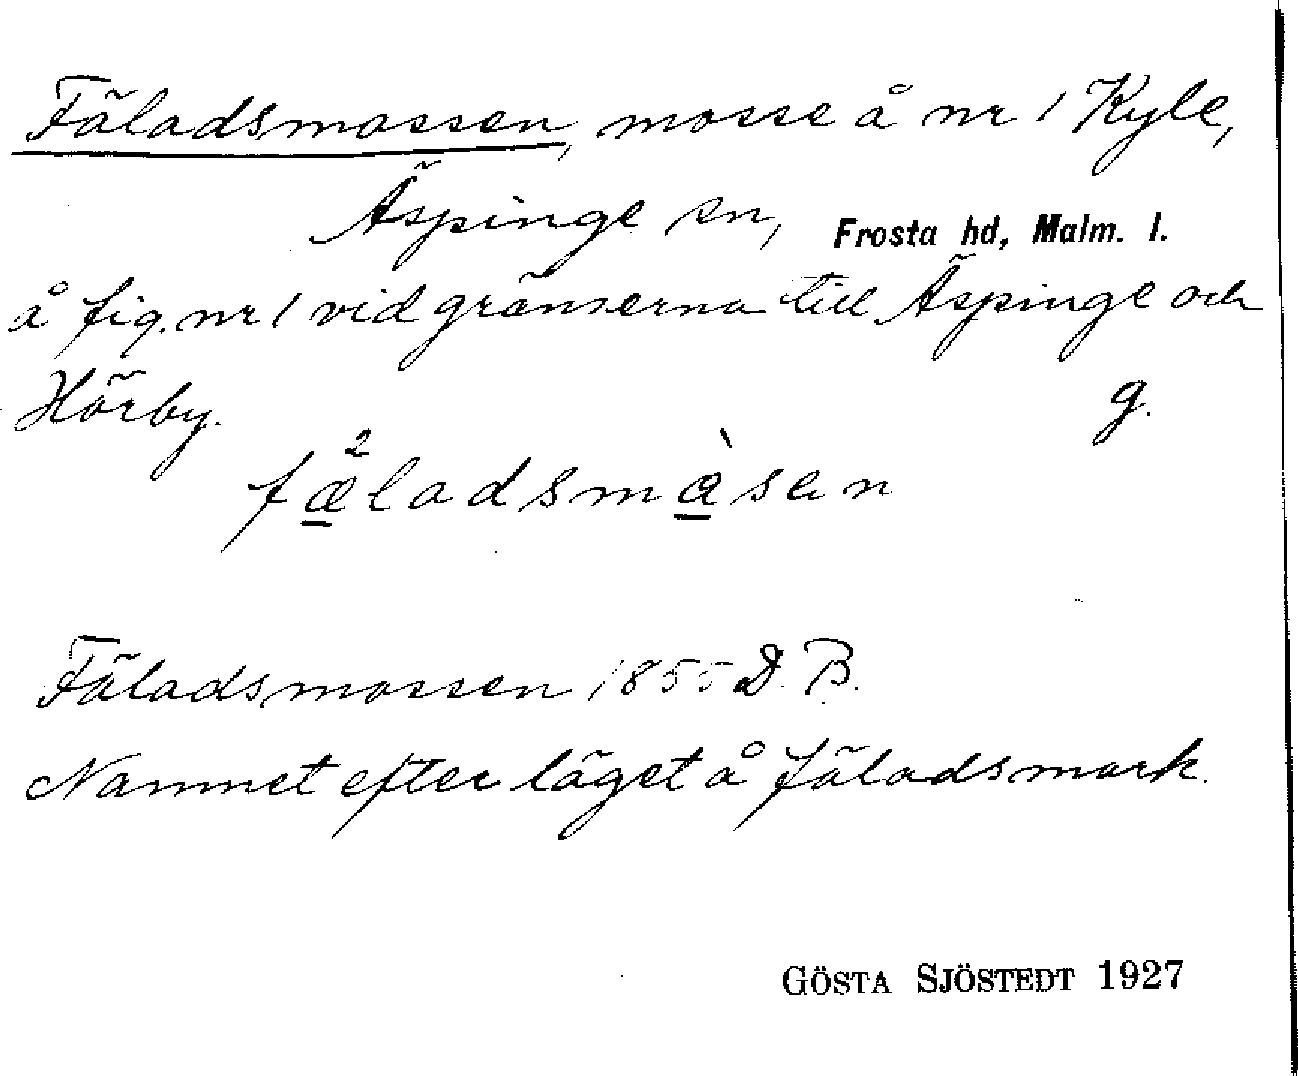 Fäladsmossen, mosse å nr 1 Kyle,
Äspinge sn, Frosta hd, Malm. l.
å fig. nr 1 vid gränserna till Äspinge och
Hörby. g.
fæladsmåsen
Fäladsmossen 1855 D. B.
Namnet efter läget å fäladsmark.
GÖSTA SJÖSTEDT 1927